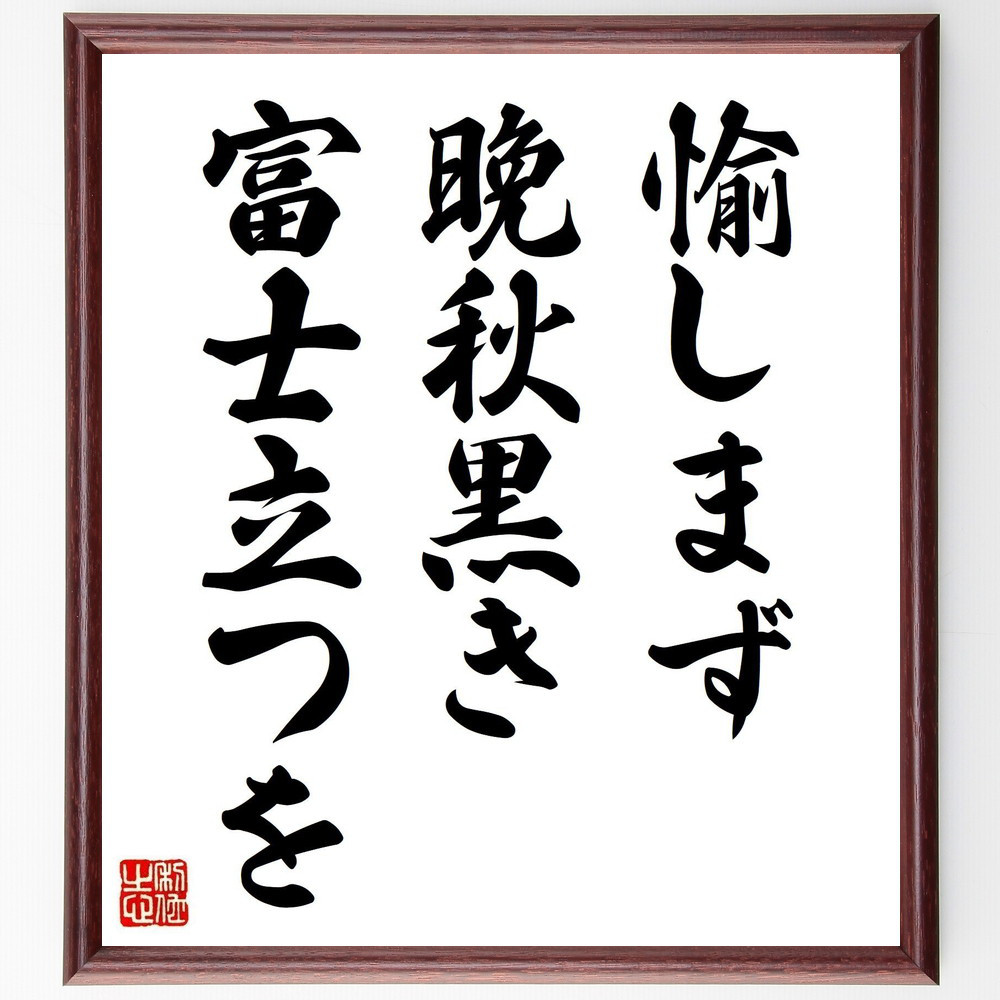 愉しまず
晩秋黒き
富士立つを